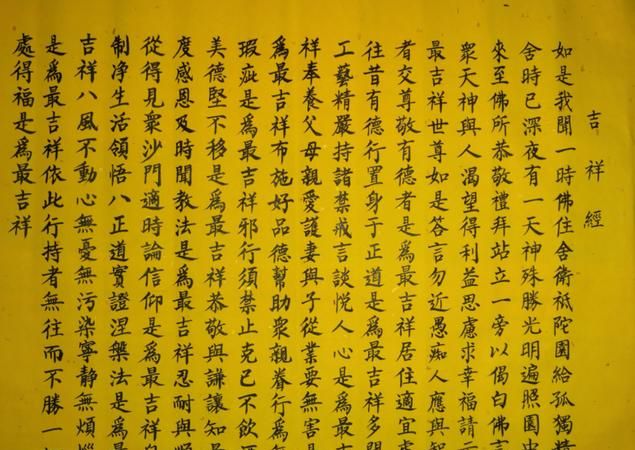 吉祥經
如是我聞一時佛住舍衛祗陀園給孤獨精
舍時已深夜有一天神殊勝光明遍照園
來至佛所恭敬禮拜站立一旁以偈白佛言
衆天神與人渴望得利益思慮求幸福請
最吉祥世尊如是答言勿近愚痴人應與
者交尊敬有德者是爲最吉祥居住適宜處
往昔有德行置身于正道是爲最吉祥多聞
工藝精嚴持諸禁戒言談悅人心是爲最
祥奉養父母親愛護妻與子從業要無害是
爲最吉祥布施好品德幫助衆親眷行爲
瑕疵是爲最吉祥邪行須禁止克己不飲
美德堅不移是爲最吉祥恭敬與謙讓知
度感恩及時聞教法是爲最吉祥忍耐與順
從得見衆沙門適時論信仰是爲最吉祥自
制净生活領悟八正道實證涅槃法是爲最
吉祥八風不動心無憂無污染寧静無煩惱
是爲最吉祥依此行持者無往而不勝一
處得福是爲最吉祥